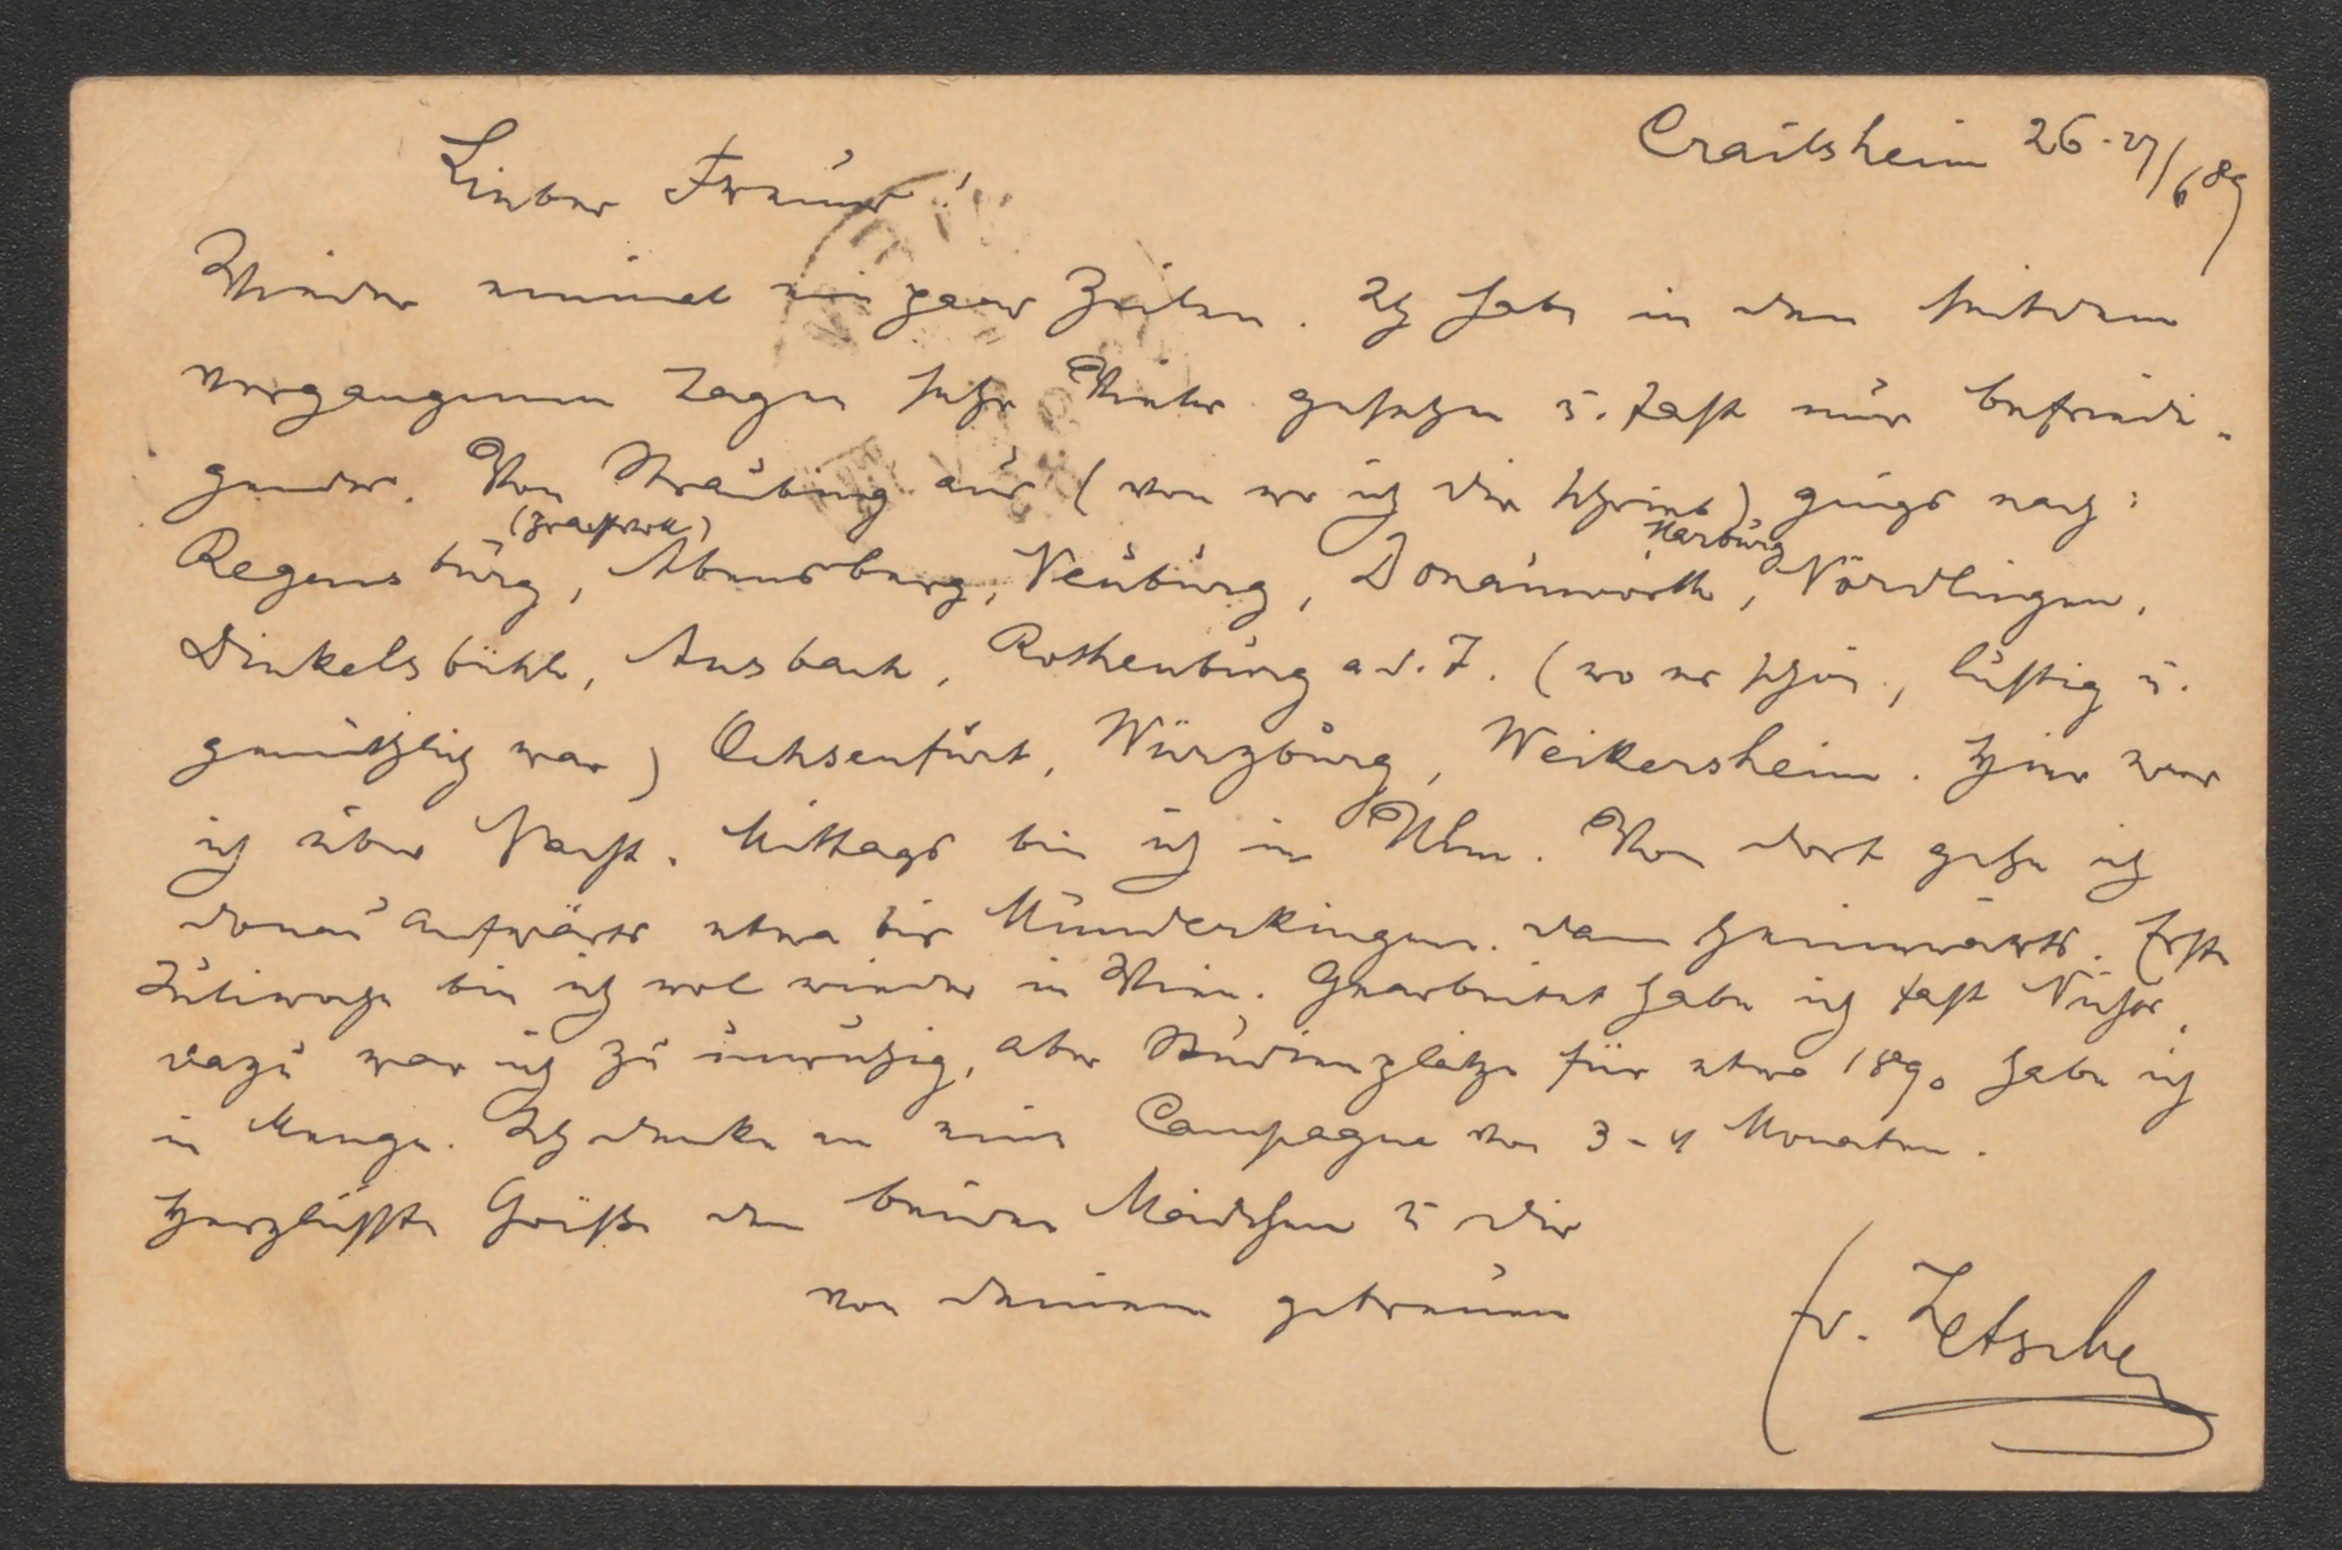 Crailsheim 26.-27/6 89
Lieber Freund!
Wieder einmal ein paar Zeilen. Ich habe in den seitdem
vergangenen Tagen sehr Vieles gesehen u. fast nur befriedi-
gendes. Von Straubing aus (von wo ich Dir schrieb) gings nach:
(prachtvoll) Harburg
Regensburg, Abensberg, Neuburg, Donauwörth, Nördlingen,
Dinkelsbühl, Ansbach, Rothenburg a. d. T. (wo es schön, lustig u.
gemüthlich war) Ochsenfurt, Würzburg, Weikersheim. Hier war
ich über Nacht. Mittags bin ich in Ulm. Von dort gehe ich
donauaufwärts etwa bis Munderkingen. dann heimwärts. Erste
Juliwoche bin ich wol wieder in Wien. Gearbeitet habe ich fast Nichts,
dazu war ich zu unruhig, aber Studienplätze für etwa 1890 habe ich
in Menge. Ich denke an eine Campagne von 3-4 Monaten.
Herzlichste Grüße den beiden Mädchen u Dir
von deinem getreuen
Ed. Zetsche